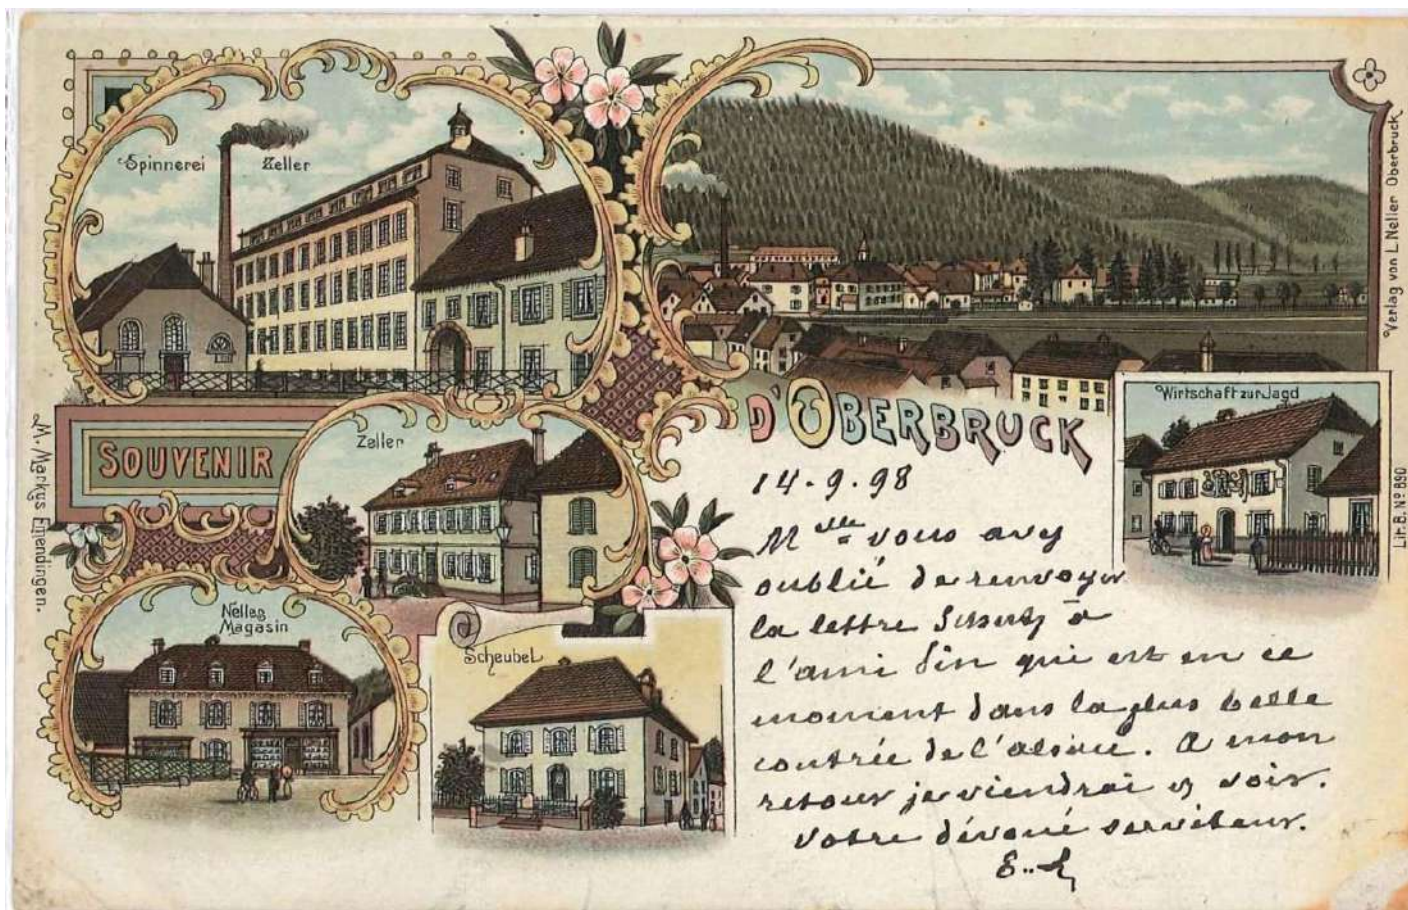 Spinnerei Zeller
Verlag von L. Neller Oberbruck
SOUVENIR
D'OBERBRUCK
Zeller
Wirtschaft zur Jagd
M. Markus Emendingen.
Lith. B. Nº 890
Nelles
Magasin
Scheubel
14.9.98
Mlle vous avez
oublié de renvoyer
la lettre à
l'ami qui est en ce
moment dans la plus belle
contrée de l'alsace. A mon
retour je viendrai y voir.
Votre dévoué serviteur.